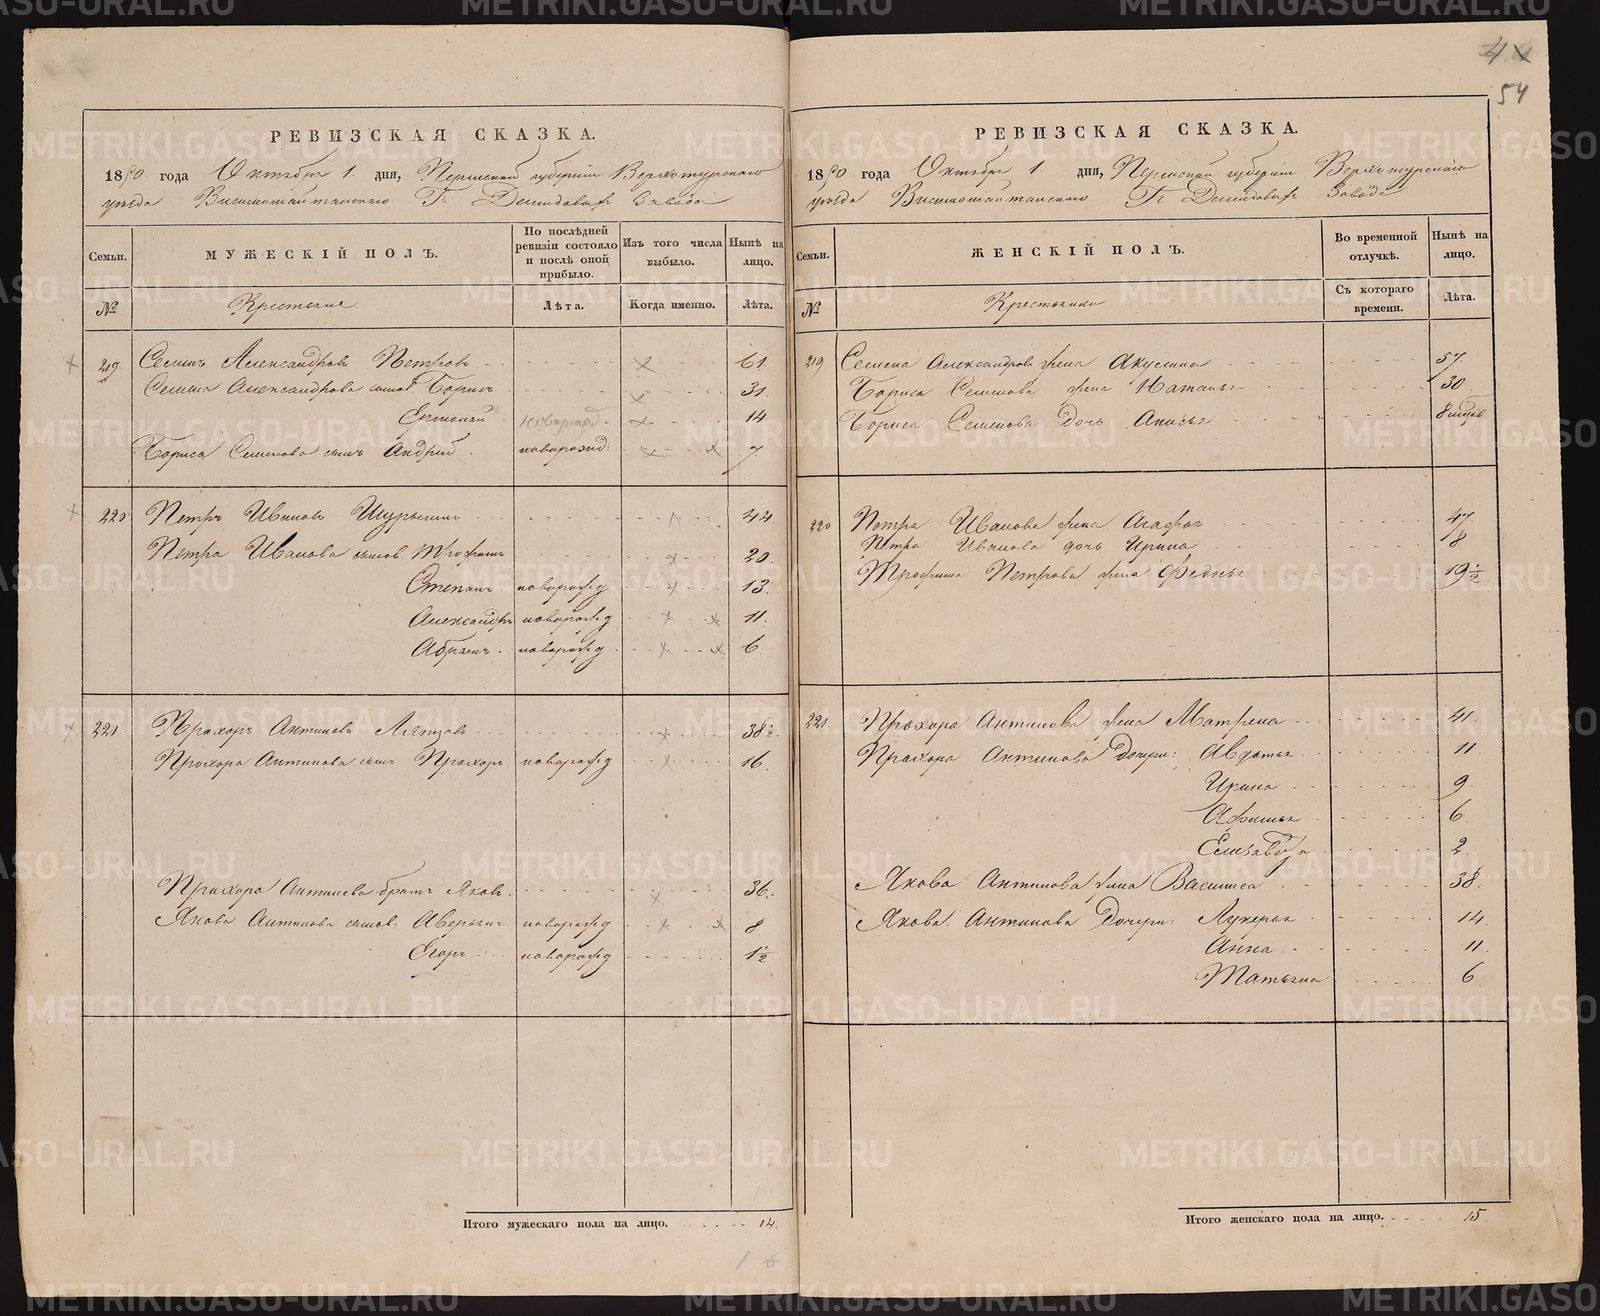 4
54
РЕВИЗСКАЯ СКАЗКА.
1850 года Октября 1. дня, Пермской губерніи Верхотурскаго
уезда Висимошайтанскаго Гг Демидовыхъ Завода
Семьи.
МУЖЕСКІЙ ПОЛЪ.
По послѣдней ревизіи состояло и послѣ оной прибыло.
Изъ того числа выбыло.
Нынѣ на лицо.
№
Крестьяне.
Лѣта.
Когда именно.
Лѣта.
219 Семенъ Александровъ Петровъ 61.
Семена Александрова сынов. Борисъ 31.
Ермолай новорожд. 14
Бориса Семенова сынъ Андрей новорожд. 7.
220 Петръ Ивановъ 44.
Петра Иванова сынов. Трофимъ 20.
Степанъ новорожд 13.
Александръ новорожд 11.
Абрамъ новорожд 6
221. Прохоръ Антиповъ Ляпцовъ 38½
Прохора Антипова сынъ Прохоръ новорожд 16.
Прохора Антипова братъ Яковъ. 36.
Якова Антипова сынов. Аверьянъ новорожд 8.
Егоръ новорожд 1½
Итого мужескаго пола на лицо. 14.
РЕВИЗСКАЯ СКАЗКА.
1850 года Октября 1. дня, Пермской губерніи Верхотурскаго
уезда Висимошайтанскаго Гг Демидовыхъ Завода
Семьи.
ЖЕНСКІЙ ПОЛЪ.
Во временной отлучкѣ.
Нынѣ на лицо.
№
Крестьянки
Съ котораго времени.
Лѣта.
219 Семена Александрова жена Акулина 57.
Бориса Семенова жена Наталья 30
Бориса Семенова дочь Анисья 8
220 Петра Иванова жена Агафья 47
Петра Иванова дочь Ирина 8
Трофима Петрова жена Федосья 19½
221. Прохора Антипова жена Матрена 41.
Прохора Антипова Дочери: Авдотья 11
Ирина 9.
Афимья 6.
Елизавета 2.
Якова Антипова жена Василиса 38.
Якова Антипова Дочери: Лукерья 14.
Анна 11.
Татьяна 6.
Итого женскаго пола на лицо. 15.
METRIKI.GASO-URAL.RU